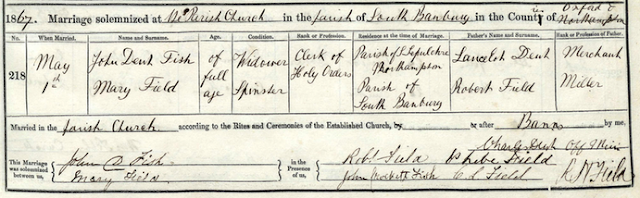 1867. Marriage solemnized at the Parish Church in the Parish of South Banbury in the County of Oxford & Northampton
No. When Married. Name and Surname. Age. Condition. Rank or Profession. Residence at the time of Marriage. Father's Name and Surname. Rank or Profession of Father.
218 May 1st John Dent Fish of full age Widower Clerk of Holy Orders Parish of St Sepulchre Northampton Lancelot Dent Merchant
Mary Field Spinster Parish of South Banbury Robert Field Miller
Married in the Parish Church according to the Rites and Ceremonies of the Established Church, or after Banns by me,
Charles Off. Minr
This Marriage was solemnized between us, John D Fish Mary Field in the Presence of us, Robt Field Phebe Field
John Fish C L Field R N Field